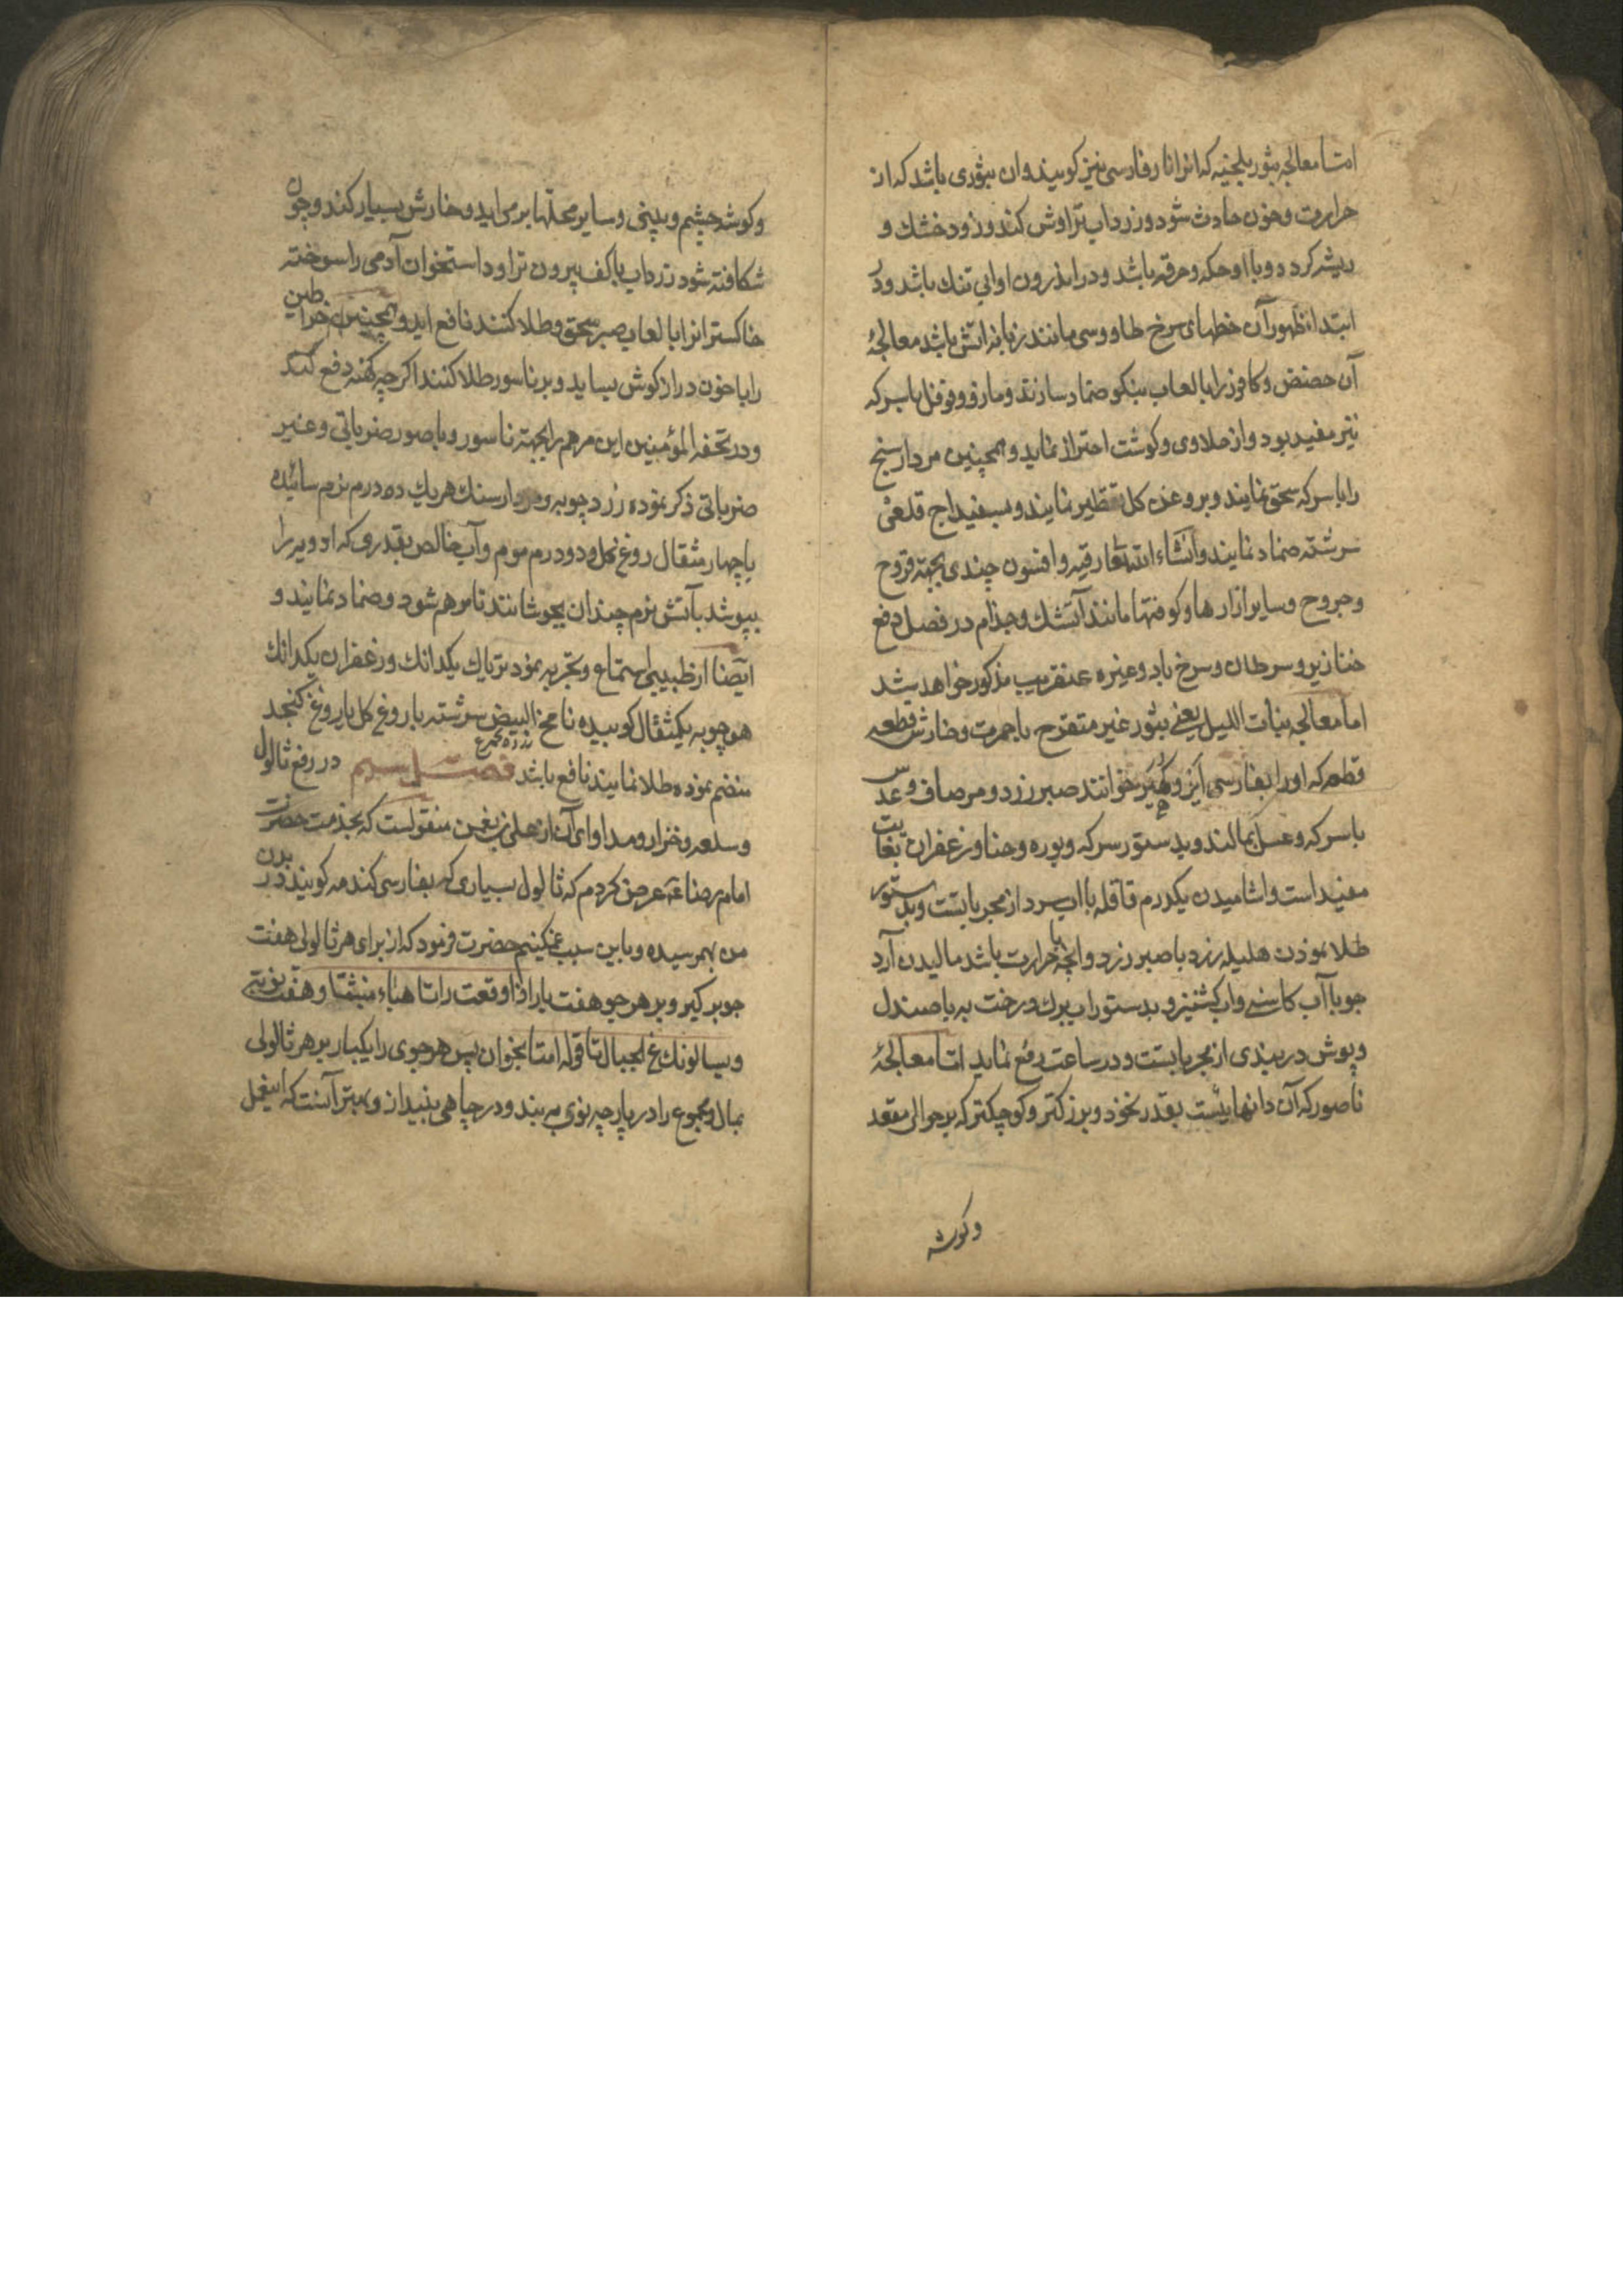 امتا معالجه بثور بلجنیه که انرا نار فارسی نیز کویند و ان بثوری باشد که از
حرارت و خون حادث شود و زرداب تراوش کند و زود خشك و
ریشه کردد و با او حکه و حرقه باشد و در اندرون او ابی تنك باشد و در
ابتداء ظهور آن خطهای سرخ طاووسی مانند زبانه اتش باشد معالجهٔ
آن حضض و کافور را با لعاب بنکو ضماد سازند و مازو و فوفل با سرکه
نیز مفید بود و از حلاوی و کوشت احتراز نماید و همچنین مردار سنج
را با سرکه سحق نمایند و بروغن کل تقطیر نمایند و بسفیداج قلعی
سرشته ضماد نمایند و انشاء الله تعا رقیه و افسون چندی بجهة قروح
و جروح و سایر ازارها و کوفتها مانند آتشك و جذام در فصل دفع
خنازیر و سرطان و سرخ باد و غیره عنقریب مذکور خواهد شد
اما معالجه بنات اللیل یعنی بثور غیر متقرح با حمرت و خارش قطعه
قطعه که اورا بفارسی ایز و کهیر خوانند صبر زرد و مر صاف و عدس
با سرکه و عسل بمالند و بدستور سرکه و بوره و حنا و زعفران بغایت
مفید است و اشامیدن یکدرم قاقله با اب سرد از مجرباتست و بدستور
طلا نمودن هلیله زرد با صبر زرد و انچه با حرارت باشد مالیدن آرد
جو با آب کاسنی و اب کشنیز و بدستور اب برك درخت به با صندل
و پوش دربندی از مجرباتست و در ساعت رفع نماید امتا معالجهٔ
ناصور که آن دانهایئست بقدر نخود و بزرکتر و کوچکتر که بر حوالی مقعد
وکوشه
وکوشه چشم و بینی و سایر محلها بر می اید و خارش بسیار کند و چون
شکافته شود زرداب با کف بیرون تراود استخوان آدمی را سوخته
خاکستر انرا با لعاب صبر سحق و طلا کنند نافع اید و همچنین خراطین
را با خون دراز کوش بساید و بر ناسور طلا کنند اکرچه کهنه دفع کند
و در تحفه المؤمنین این مرهم را بجهة ناسور و باصور ضرباتی و غیر
ضرباتی ذکر نموده زرد چوبه و مردار سنك هر یك ده درم نرم سائیده
با چهار مثقال روغ کل و دو درم موم و آب خالص بقدری که ادویه را
بپوشد بآتش نرم چندان بجوشانند تا مرهم شود و ضماد نمایند و
ایضا از طبیبی استماع و تجربه نمود تریاك یکدانك و زعفران یکدانك
هو چوبه یکمثقال کوبیده نامخ البیض سرشته با روغ کل یا روغ کنجد
زرده تخم مرغ
منضم نموده طلا نمایند نافع باشد فصل سیم در رفع ثالول
و سلعه و خزار و مداوای آن از علی بن نعمن منقولست که بخدمت حضرت
امام رضا ع عرض کردم که ثالول بسیاری که بفارسی کندمه کویند در بدن
من بهمرسیده و باین سبب غمکینم حضرت فرمود که از برای هر ثالولی هفت
جو بر کیر و بر هر جو هفت بار اذا وقعت را تا هباء منبثا و هفت نوبت
و یسالونك ع الجبال تا قوله امتا بخوان پس هر جوی را یکبار بر هر ثالولی
بمال و مجموع را در پارچه نوی به بند و در چاهی بنیداز و بهتر آنست که اینعمل